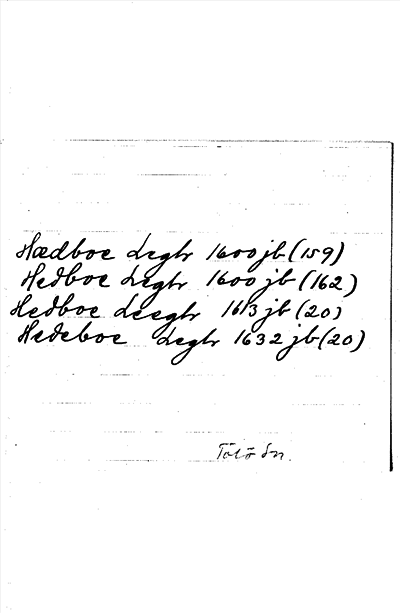 Hædboe Legh 1600 jb (159)
Hedboe Legh 1600 jb (162)
Hedboe Leegh 1613 jb (20)
Hedeboe Legh 1632 jb (20)
Tölö sn.